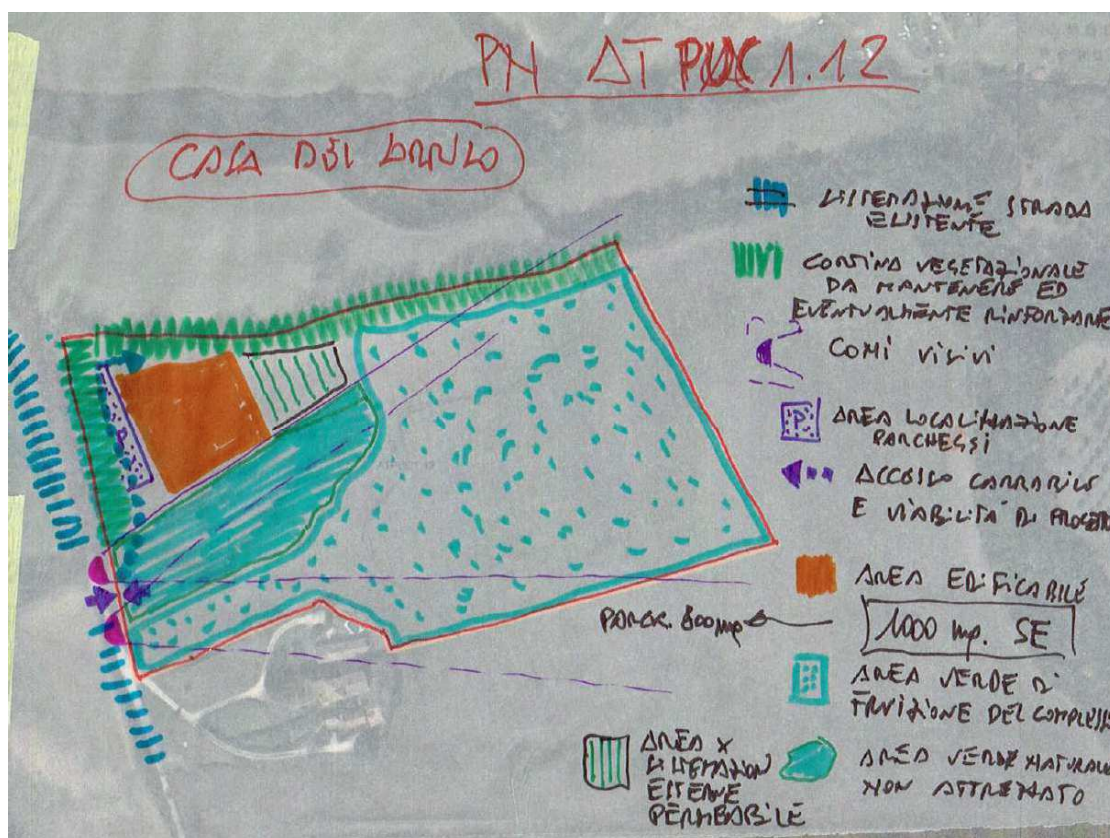 PN AT PUC 1.12
CASA DEL
SISTEMAZIONE STRADA
ESISTENTE
CORTINA VEGETAZIONALE
DA MANTENERE ED
EVENTUALMENTE RINFORZARE
CONI VISIVI
P
P
AREA LOCALIZZAZIONE
PARCHEGGI
ACCESSO CARRABILE
E VIABILITÀ DI PROGE
AREA EDIFICABILE
1000 mq. SE
PARCH. 800 mq
AREA VERDE DI
FRUIZIONE DEL COMPLESS
AREA X
SISTEMAZION
ESTERNE
PERMEABILE
AREA VERDE NATURALE
NON ATTREZZATO